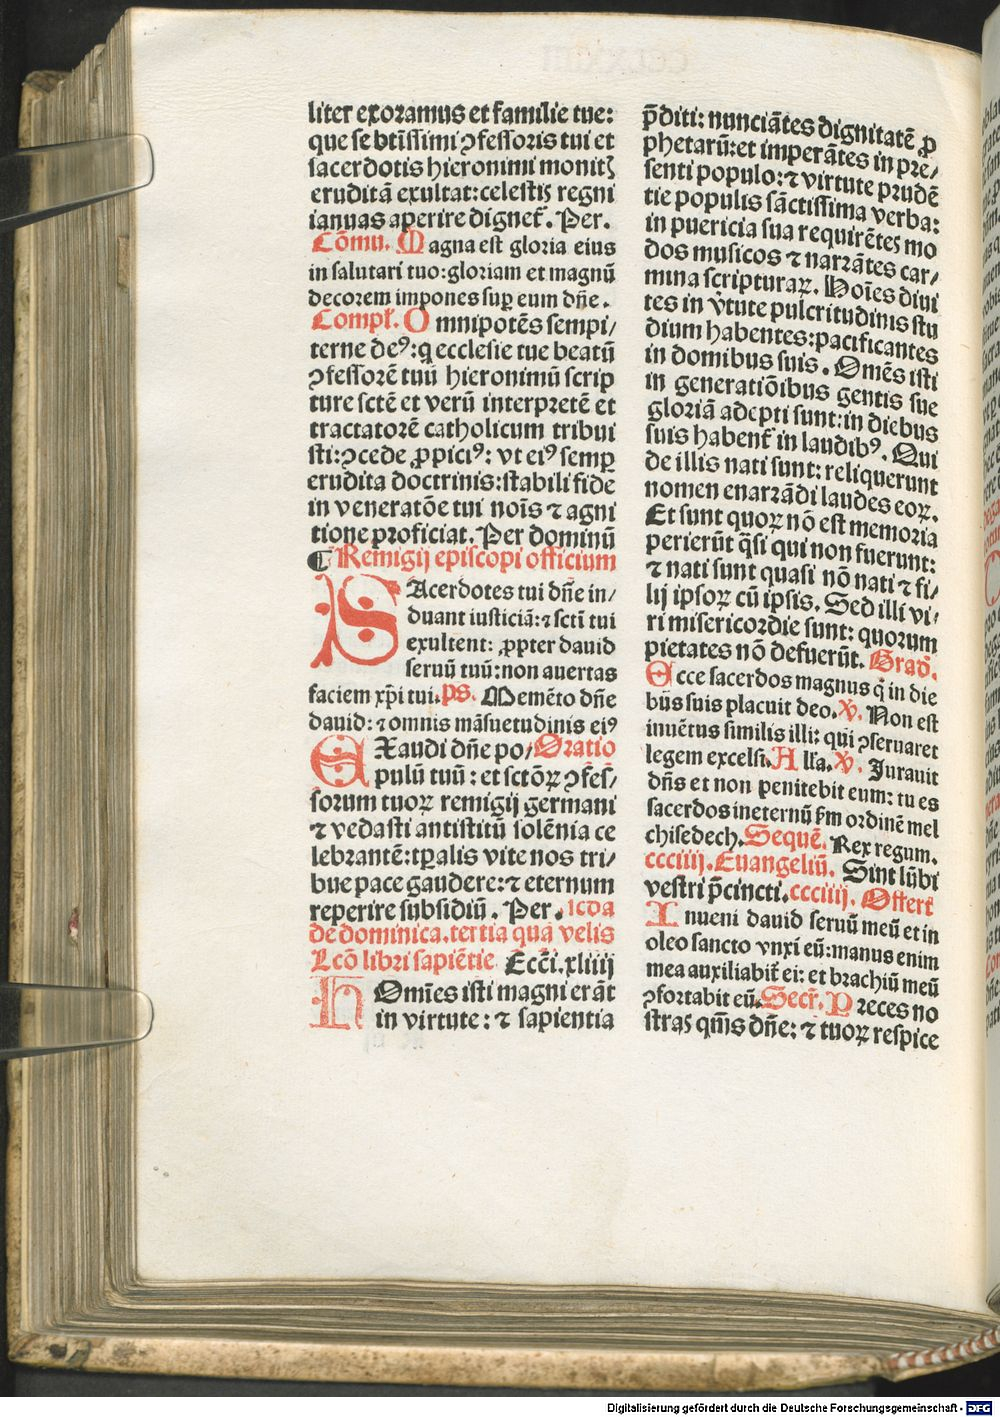 liter exoramus et familie tue:
que se btissimi ꝯfessoris tui et
sacerdotis hieronimi monitꝭ
eruditā exultat: celestiꝭ regni
ianuas aperire dignet᷑. Per.
Cōmu. Magna est gloria eius
in salutari tuo: gloriam et magnū
decorem impones suꝑ eum dn̄e.
Compl̄. Omnipotēs sempi/
terne deꝰ: q ecclesie tue beatū
ꝯfessorē tuū hieronimū scrip
ture sctē et verū interpretē et
tractatorē catholicum tribui
sti: ꝯcede ꝓpiciꝰ: vt eiꝰ semꝑ
erudita doctrinis: stabili fide
in veneratōe tui noīs ⁊ agni
tione proficiat. Per dominū
¶ Remigij episcopi officium
SAcerdotes tui dn̄e in/
duant iusticiā: ⁊ sctī tui
exultent: ꝓpter dauid
seruū tuū: non auertas
faciem xp̄i tui. ps. Memēto dn̄e
dauid: ⁊ omnis māsuetudinis eiꝰ
EXaudi dn̄e po/ Oratio
pulū tuū: et sctōꝝ ꝯfes/
sorum tuoꝝ remigij germani
⁊ vedasti antistitū solēnia ce
lebrantē: tꝑalis vite nos tri/
bue pace gaudere: ⁊ eternum
reperire subsidiū. Per. Icda
de dominica. tertia qua velis
Lcō libri sapiētie Ecci. xliiij
HOmīes isti magni er āt
in virtute: ⁊ sapientia
p̄diti: nunciātes dignitatē ꝓ
phetarū: et imperātes in pre/
senti populo: ⁊ virtute prudē
tie populis sāctissima verba:
in puericia sua requirētes mo
dos musicos ⁊ narrātes car/
mina scripturaꝝ. Hoīes diui
tes in v̓tute pulcritudinis stu
dium habentes: pacificantes
in domibus suis. Omēs isti
in generatiōibus gentis sue
gloriā adepti sunt: in diebus
suis habent᷑ in laudibꝰ. Qui
de illis nati sunt: reliquerunt
nomen enarrādi laudes eoꝝ.
Et sunt quoꝝ nō est memoria
perierūt q̄si qui non fuerunt:
⁊ nati sunt quasi nō nati ⁊ fi/
lij ipsoꝝ cū ipsis. Sed illi vi/
ri misericordie sunt: quorum
pietates nō defuerūt. Grad̄.
Ecce sacerdos magnus q̓ in die
bus suis placuit deo. ℣. Non est
inuētus similis illi: qui ꝯseruaret
legem excelsi. Alła. ℣. Jurauit
dn̄s et non penitebit eum: tu es
sacerdos ineternū ẜm ordinē mel
chisedech. Sequē. Rex regum.
ccciiij. Euangeliū. Sint lūbi
vestri p̄cincti. ccciiij. Offert
Inueni dauid seruū meū et in
oleo sancto vnxi eū: manus enim
mea auxiliabit᷑ ei: et brachiū meū
ꝯfortabit eū. Secr̄. Preces no
stras qm̄s dn̄e: ⁊ tuoꝝ respice
Digitalisierung gefördert durch die Deutsche Forschungsgemeinschaft - DFG